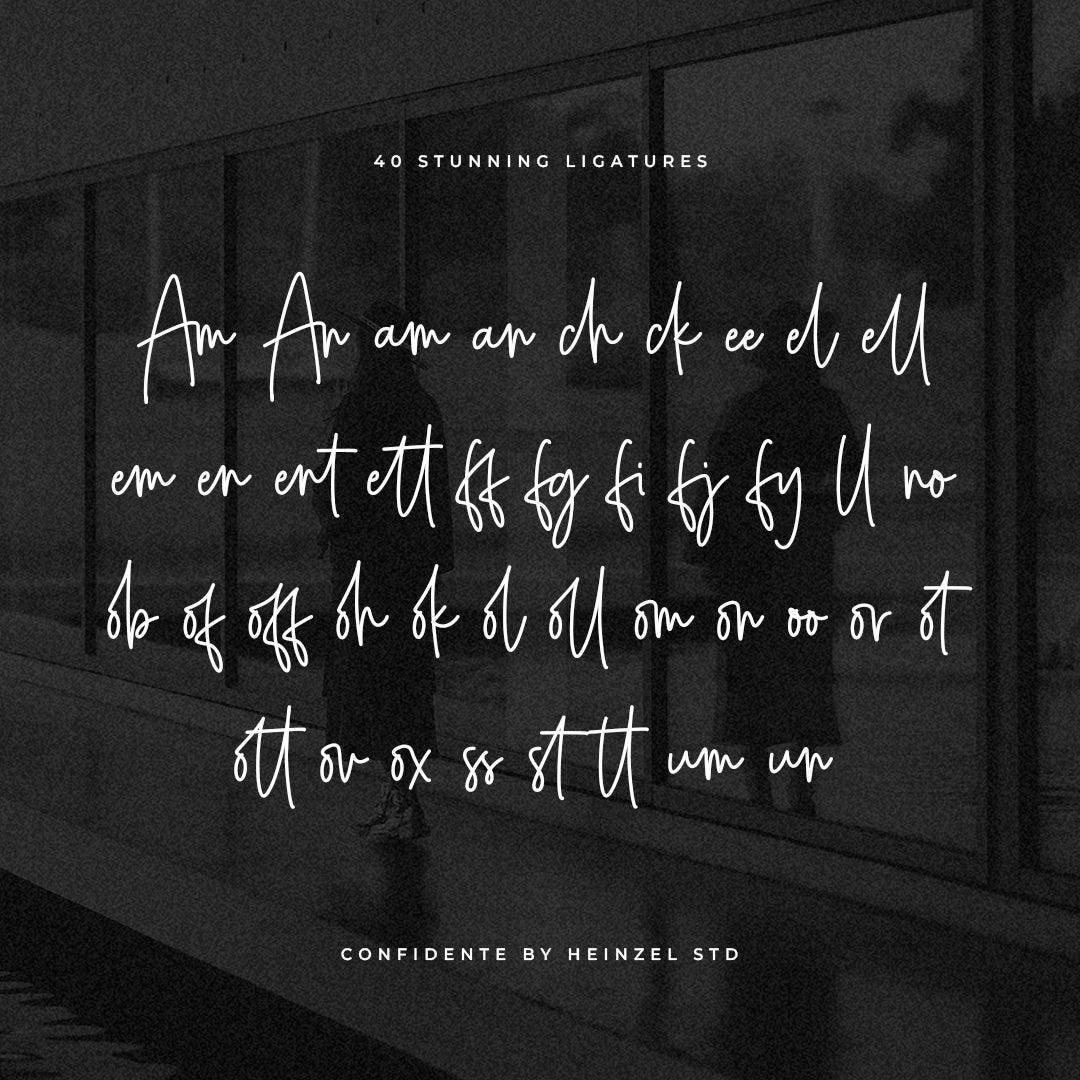 40 STUNNING LIGATURES
Am An am an ch ck ee el ell
em en ent ett ff fg fi fj fy ll no
ob of off oh ok ol oll om on oo or ot
ott ov ox ss st tt um un
CONFIDENTE BY HEINZEL STD